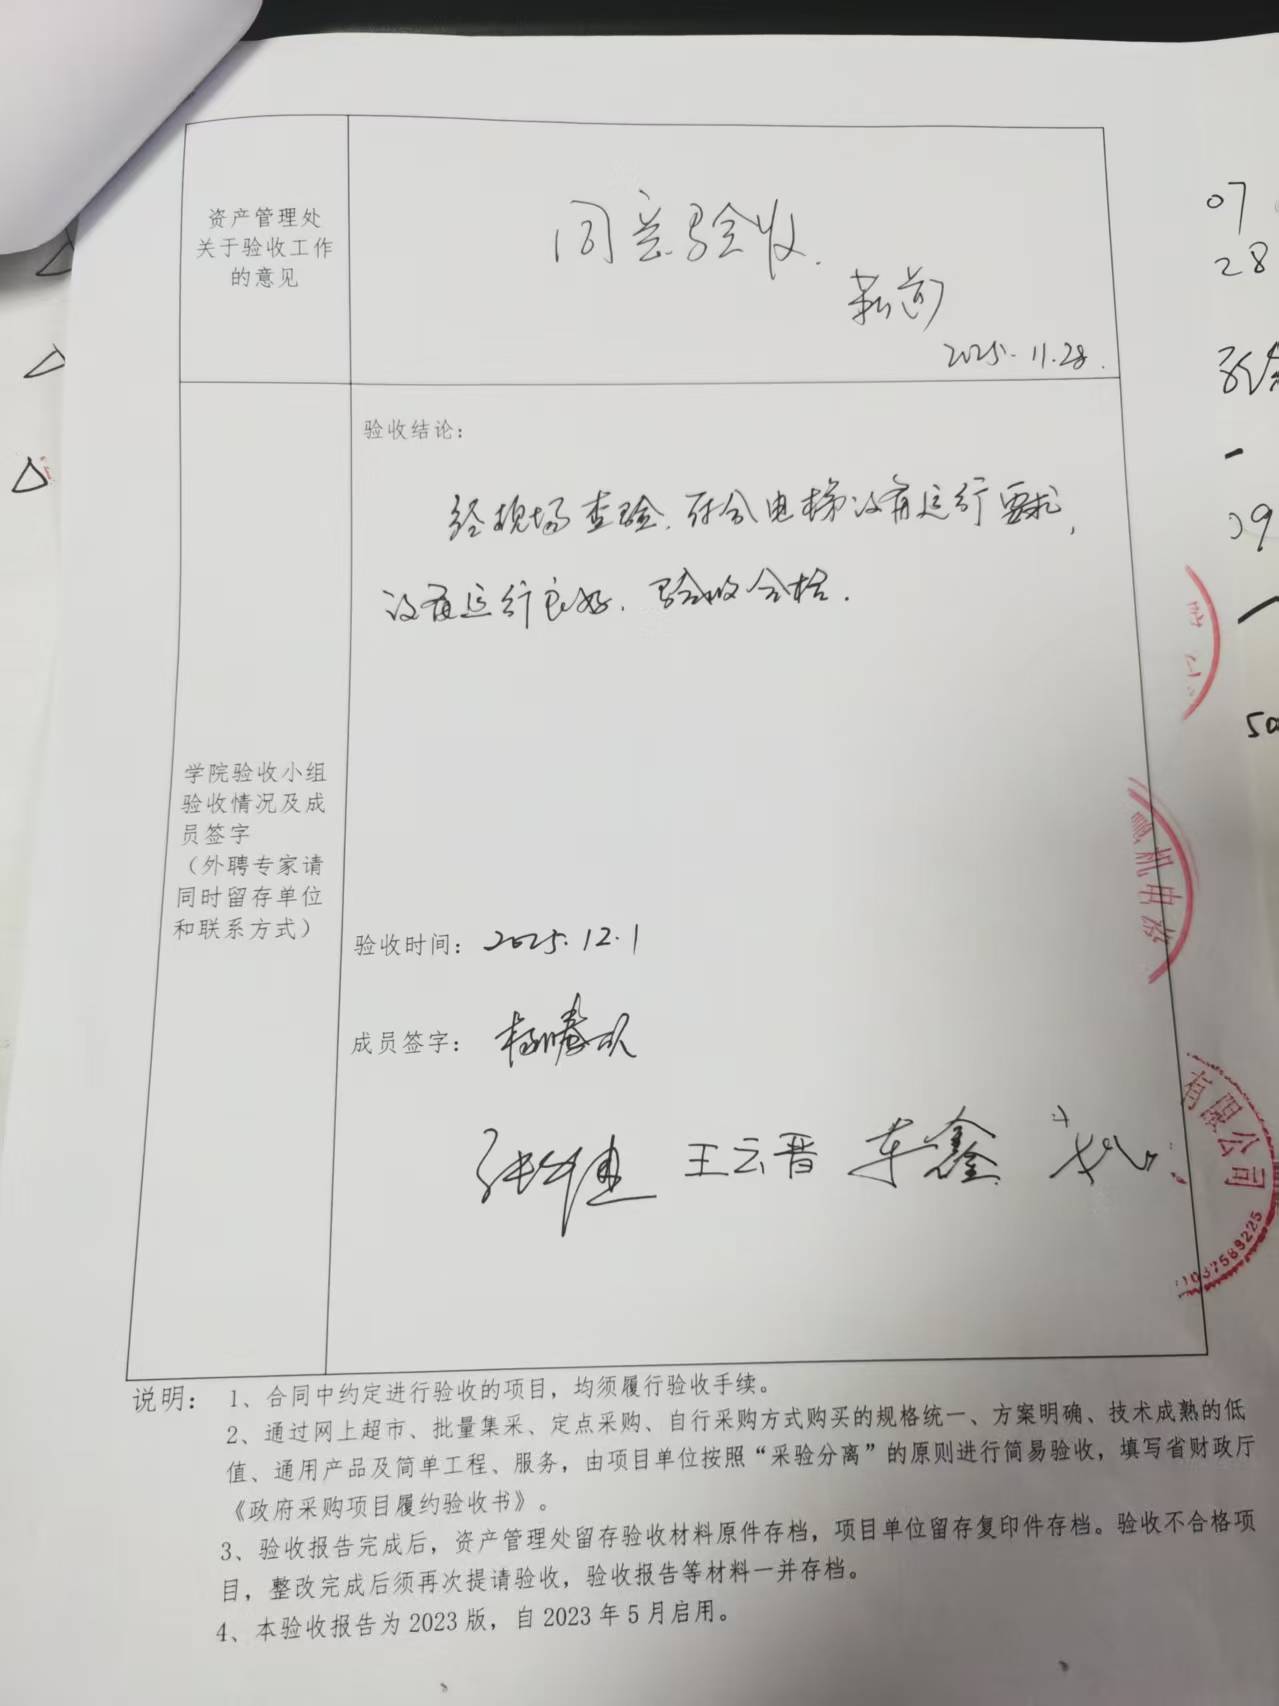 资产管理处
关于验收工作
的意见
同意验收.
2025.11.28.
验收结论：
经现场查验，符合电梯设备运行要求，
设备运行良好，验收合格.
学院验收小组
验收情况及成
员签字
（外聘专家请
同时留存单位
和联系方式）
验收时间：2025.12.1
成员签字：
王云晋 车鑫
07
28
09
50
机电设
有限公司
1037589225
说明：1、合同中约定进行验收的项目，均须履行验收手续。
2、通过网上超市、批量集采、定点采购、自行采购方式购买的规格统一、方案明确、技术成熟的低
值、通用产品及简单工程、服务，由项目单位按照“采验分离”的原则进行简易验收，填写省财政厅
《政府采购项目履约验收书》。
3、验收报告完成后，资产管理处留存验收材料原件存档，项目单位留存复印件存档。验收不合格项
目，整改完成后须再次提请验收，验收报告等材料一并存档。
4、本验收报告为2023版，自2023年5月启用。